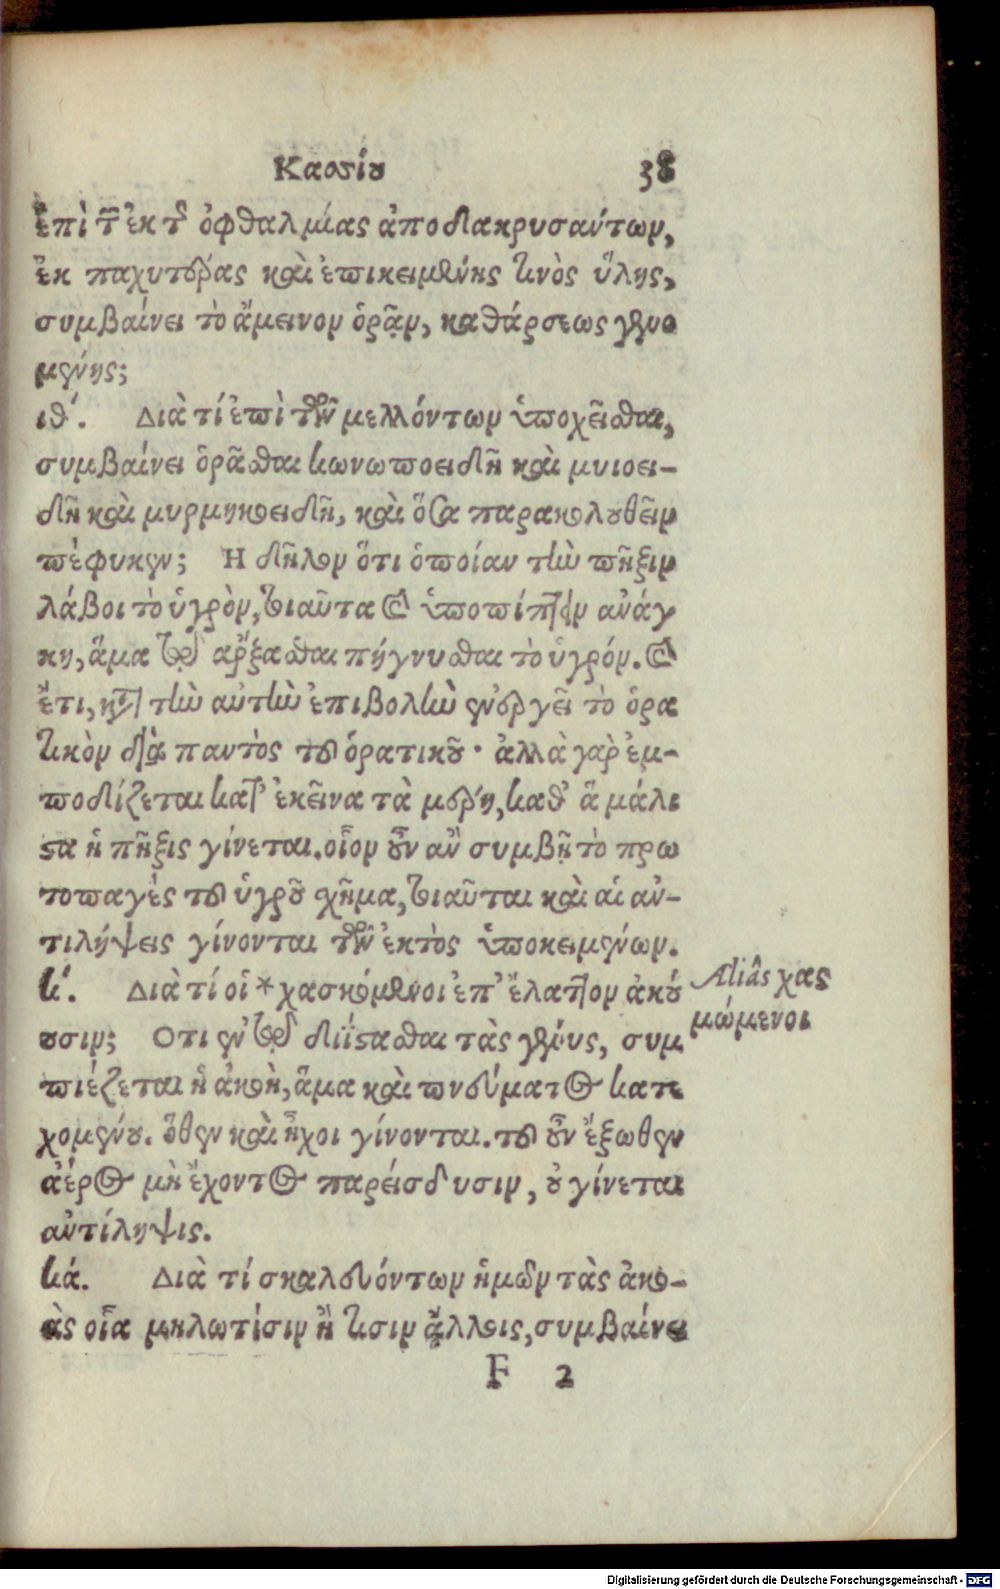 Κασσίου 38
ἐπὶ τῶν ἐκ τῆς ὀφθαλμίας ἀποδακρυσάντων,
ἐκ παχυτέρας καὶ ἐπικειμένης τινὸς ὕλης,
συμβαίνει τὸ ἄμεινον ὁρᾷν, καθάρσεως γενο
μένης;
ιθ΄. Διὰ τί ἐπὶ τῶν μελλόντων ὑποχεῖσθαι,
συμβαίνει ὁρᾶσθαι κωνωποειδῆ καὶ μυιοει-
δῆ καὶ μυρμηκοειδῆ, καὶ ὅσα παρακολουθεῖν
πέφυκεν; Η δῆλον ὅτι ὁποίαν τὴν πῆξιν
λάβοι τὸ ὑγρὸν, τοιαῦτα καὶ ὑποπίπτειν ἀνάγ
κη, ἅμα τῷ ἄρξασθαι πήγνυσθαι τὸ ὑγρόν. καὶ
ἔτι, κατὰ τὴν αὐτὴν ἐπιβολὴν ἐνεργεῖ τὸ ὁρα
τικὸν διὰ παντὸς τοῦ ὁρατικοῦ· ἀλλὰ γὰρ ἐμ-
ποδίζεται κατ' ἐκεῖνα τὰ μέρη, καθ' ἃ μάλι
στα ἡ πῆξις γίνεται. οἷον οὖν ἂν συμβῇ τὸ πρω
τοπαγὲς τοῦ ὑγροῦ σχῆμα, τοιαῦται καὶ αἱ ἀν-
τιλήψεις γίνονται τῶν ἐκτὸς ὑποκειμένων.
κ΄. Διὰ τί οἱ * χασκόμενοι ἐπ' ἔλαττον ἀκού
ουσιν; Οτι ἐν τῷ διΐστασθαι τὰς γένυς, συμ
πιέζεται ἡ ἀκοὴ, ἅμα καὶ πνεύματος κατε
χομένου. ὅθεν καὶ ἦχοι γίνονται. τοῦ οὖν ἔξωθεν
ἀέρος μὴ ἔχοντος παρείσδυσιν, οὐ γίνεται
ἀντίληψις.
κά. Διὰ τί σκαλευόντων ἡμῶν τὰς ἀκο-
ὰς οἷα μηλωτίσιν ἢ τισιν ἄλλοις, συμβαίνει
F 2
Aliâs χας
μώμενοι
Digitalisierung gefördert durch die Deutsche Forschungsgemeinschaft - DFG